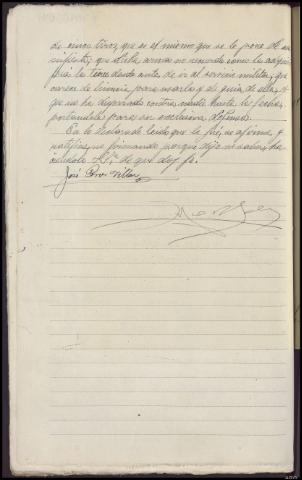 de cinco tiros, que es el mismo que se le pone de ma-
nifiesto; que dicha arma no recuerda como la adqui-
rió la tiene desde antes de ir al servicio militar, que
carece de licencia para usarla y de guía de ella, y
que no ha disparado contra nadie hasta la fecha,
portándola para su exclusiva defensa.
En la declaración leída que le fué, se afirma y
ratifica, no firmando porque dijo no saber, ha-
ciéndolo S.Sª de que doy fe.
José Villar